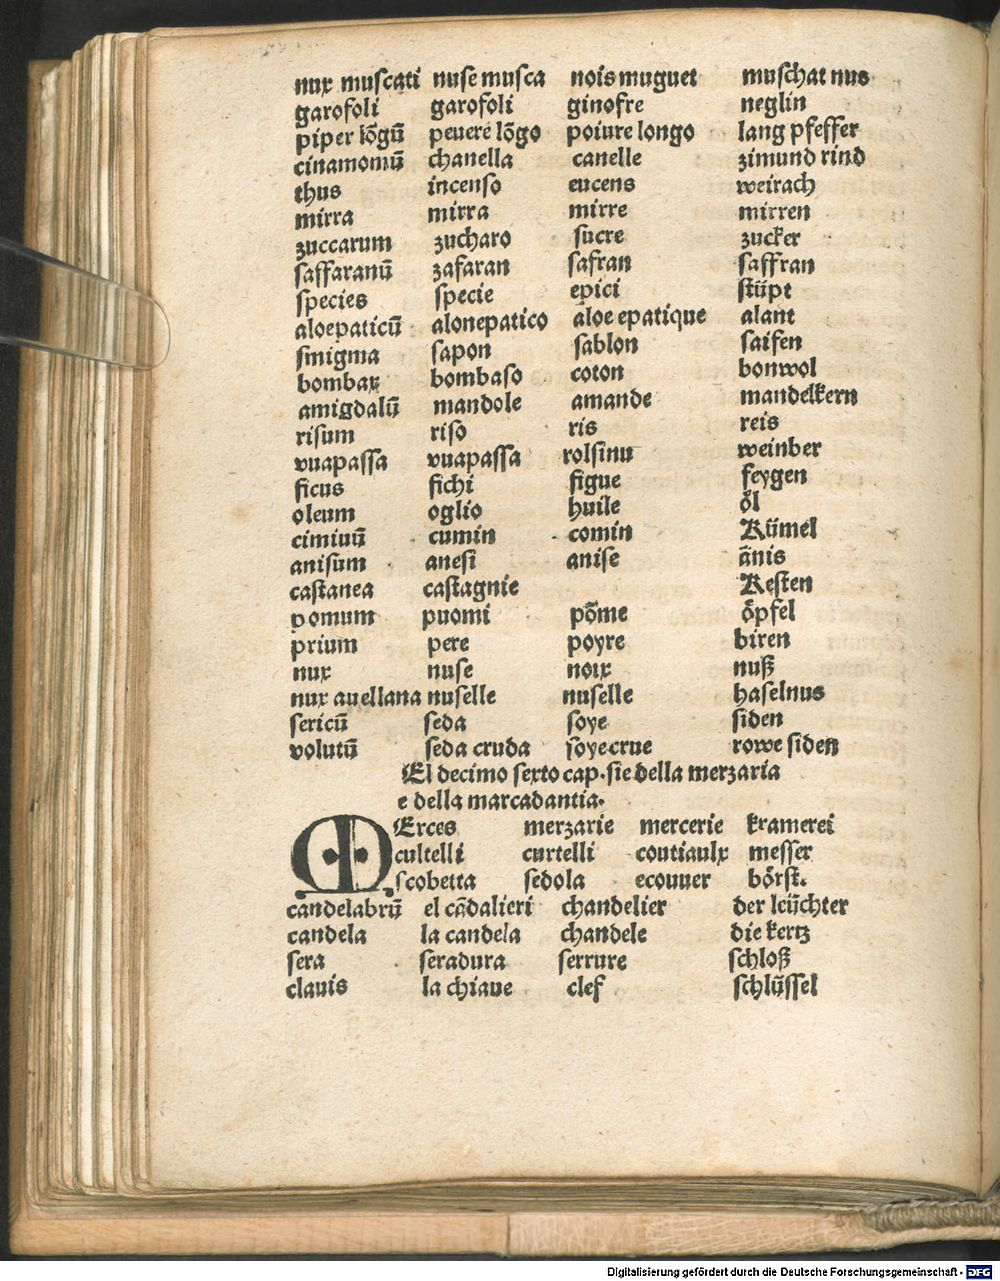 nux muscati nuse musca nois muguet muschat nus
garofoli garofoli ginofre neglin
piper lõgũ peuere lõgo poiure longo lang pfeffer
cinamomũ chanella canelle zimund rind
thus incenso encens weirach
mirra mirra mirre mirren
zuccarum zucharo sucre zucker
saffaranũ zafaran safran saffran
species specie epici stüpt
aloepaticũ alonepatico aloe epatique alant
smigma sapon sablon saifen
bombax bombaso coton bonwol
amigdalũ mandole amande mandelkern
risum riso ris reis
vuapassa vuapassa rolsinu weinber
ficus fichi figue feygen
oleum oglio huile öl
cimiuũ cumin comin Kümel
anisum anesi anise ãnis
castanea castagnie Kesten
pomum puomi põme öpfel
prium pere poyre biren
nux nuse noix nuß
nux auellana nuselle nuselle haselnus
sericũ seda soye siden
volutũ seda cruda soye crue rowe siden
El decimo sexto cap. sie della merzaria
e della marcadantia.
MErces merzarie mercerie kramerei
cultelli curtelli coutiaulx messer
scobetta sedola ecouuer börst.
candelabrũ el cãdalieri chandelier der leüchter
candela la candela chandele die kertz
sera seradura serrure schloß
clauis la chiaue clef schlüssel
Digitalisierung gefördert durch die Deutsche Forschungsgemeinschaft - DFG